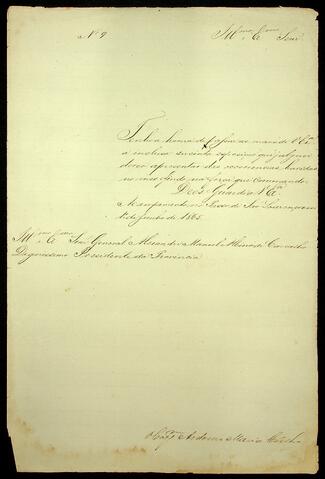 Nº 9
Illmo. e Exmo. Senr.
Tenho a honra de passar as mãos de V. Exa.
a inclusa succinta exposição que julguei
dever apresentar das occurrencias havidas
no mez findo na força que commando.
Deos Guarde a V. Exa.
Acampamento no Passo de São Lourenço
1º de Junho de 1865.
Illmo. e Exmo. Senr. General Alexandre Manoel Albino de Carvalho
Dignissimo Presidente da Provincia
Antonio Maria